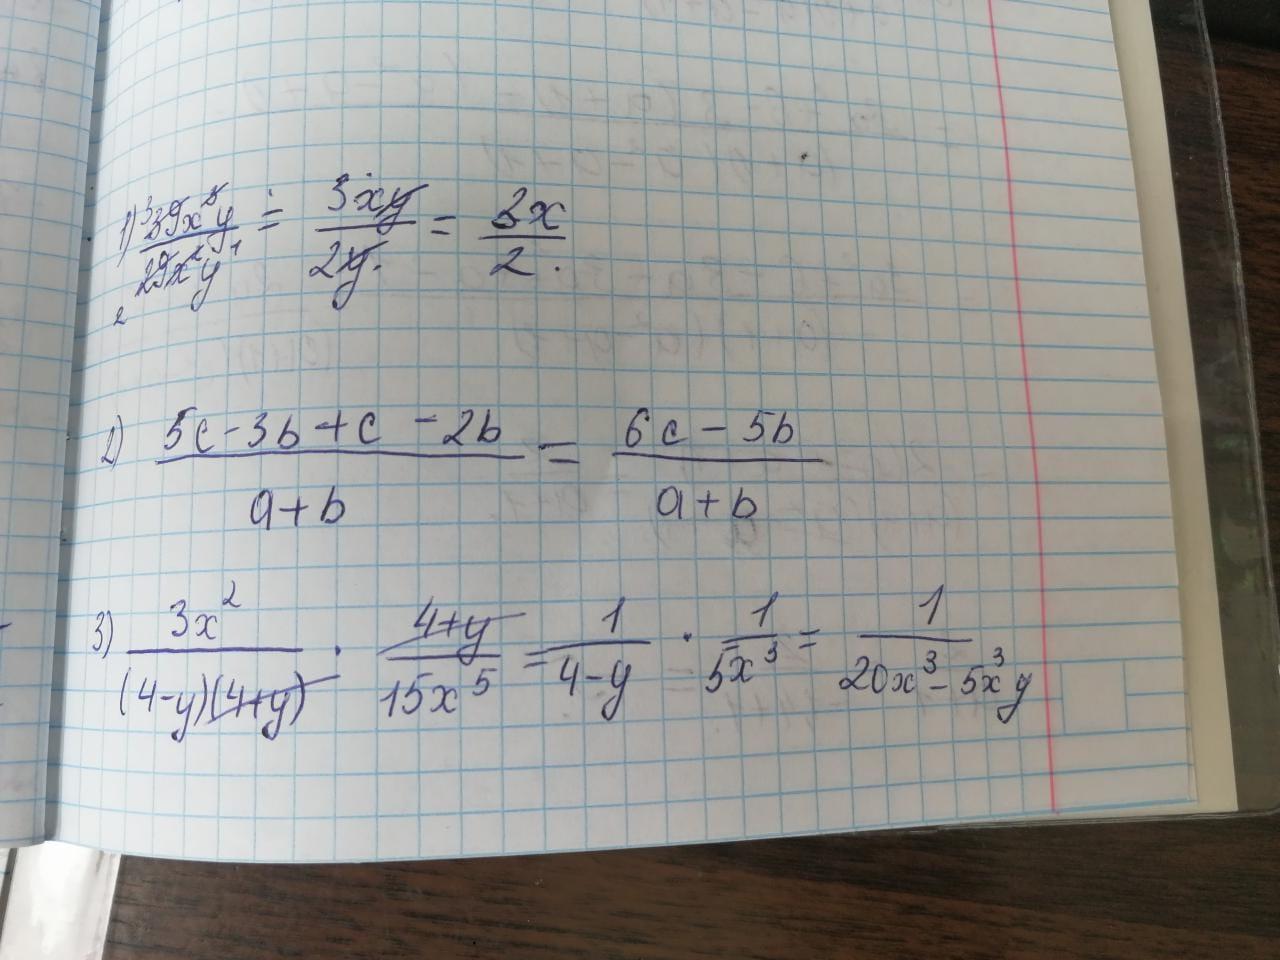 1) 39x³y / 29x²y = 3xy / 2y = 3x / 2.
2) 5c-3b+c-2b / a+b = 6c-5b / a+b
3) 3x² / (4-y)(4+y) · 4+y / 15x⁵ = 1 / 4-y · 1 / 5x³ = 1 / 20x³-5x³y